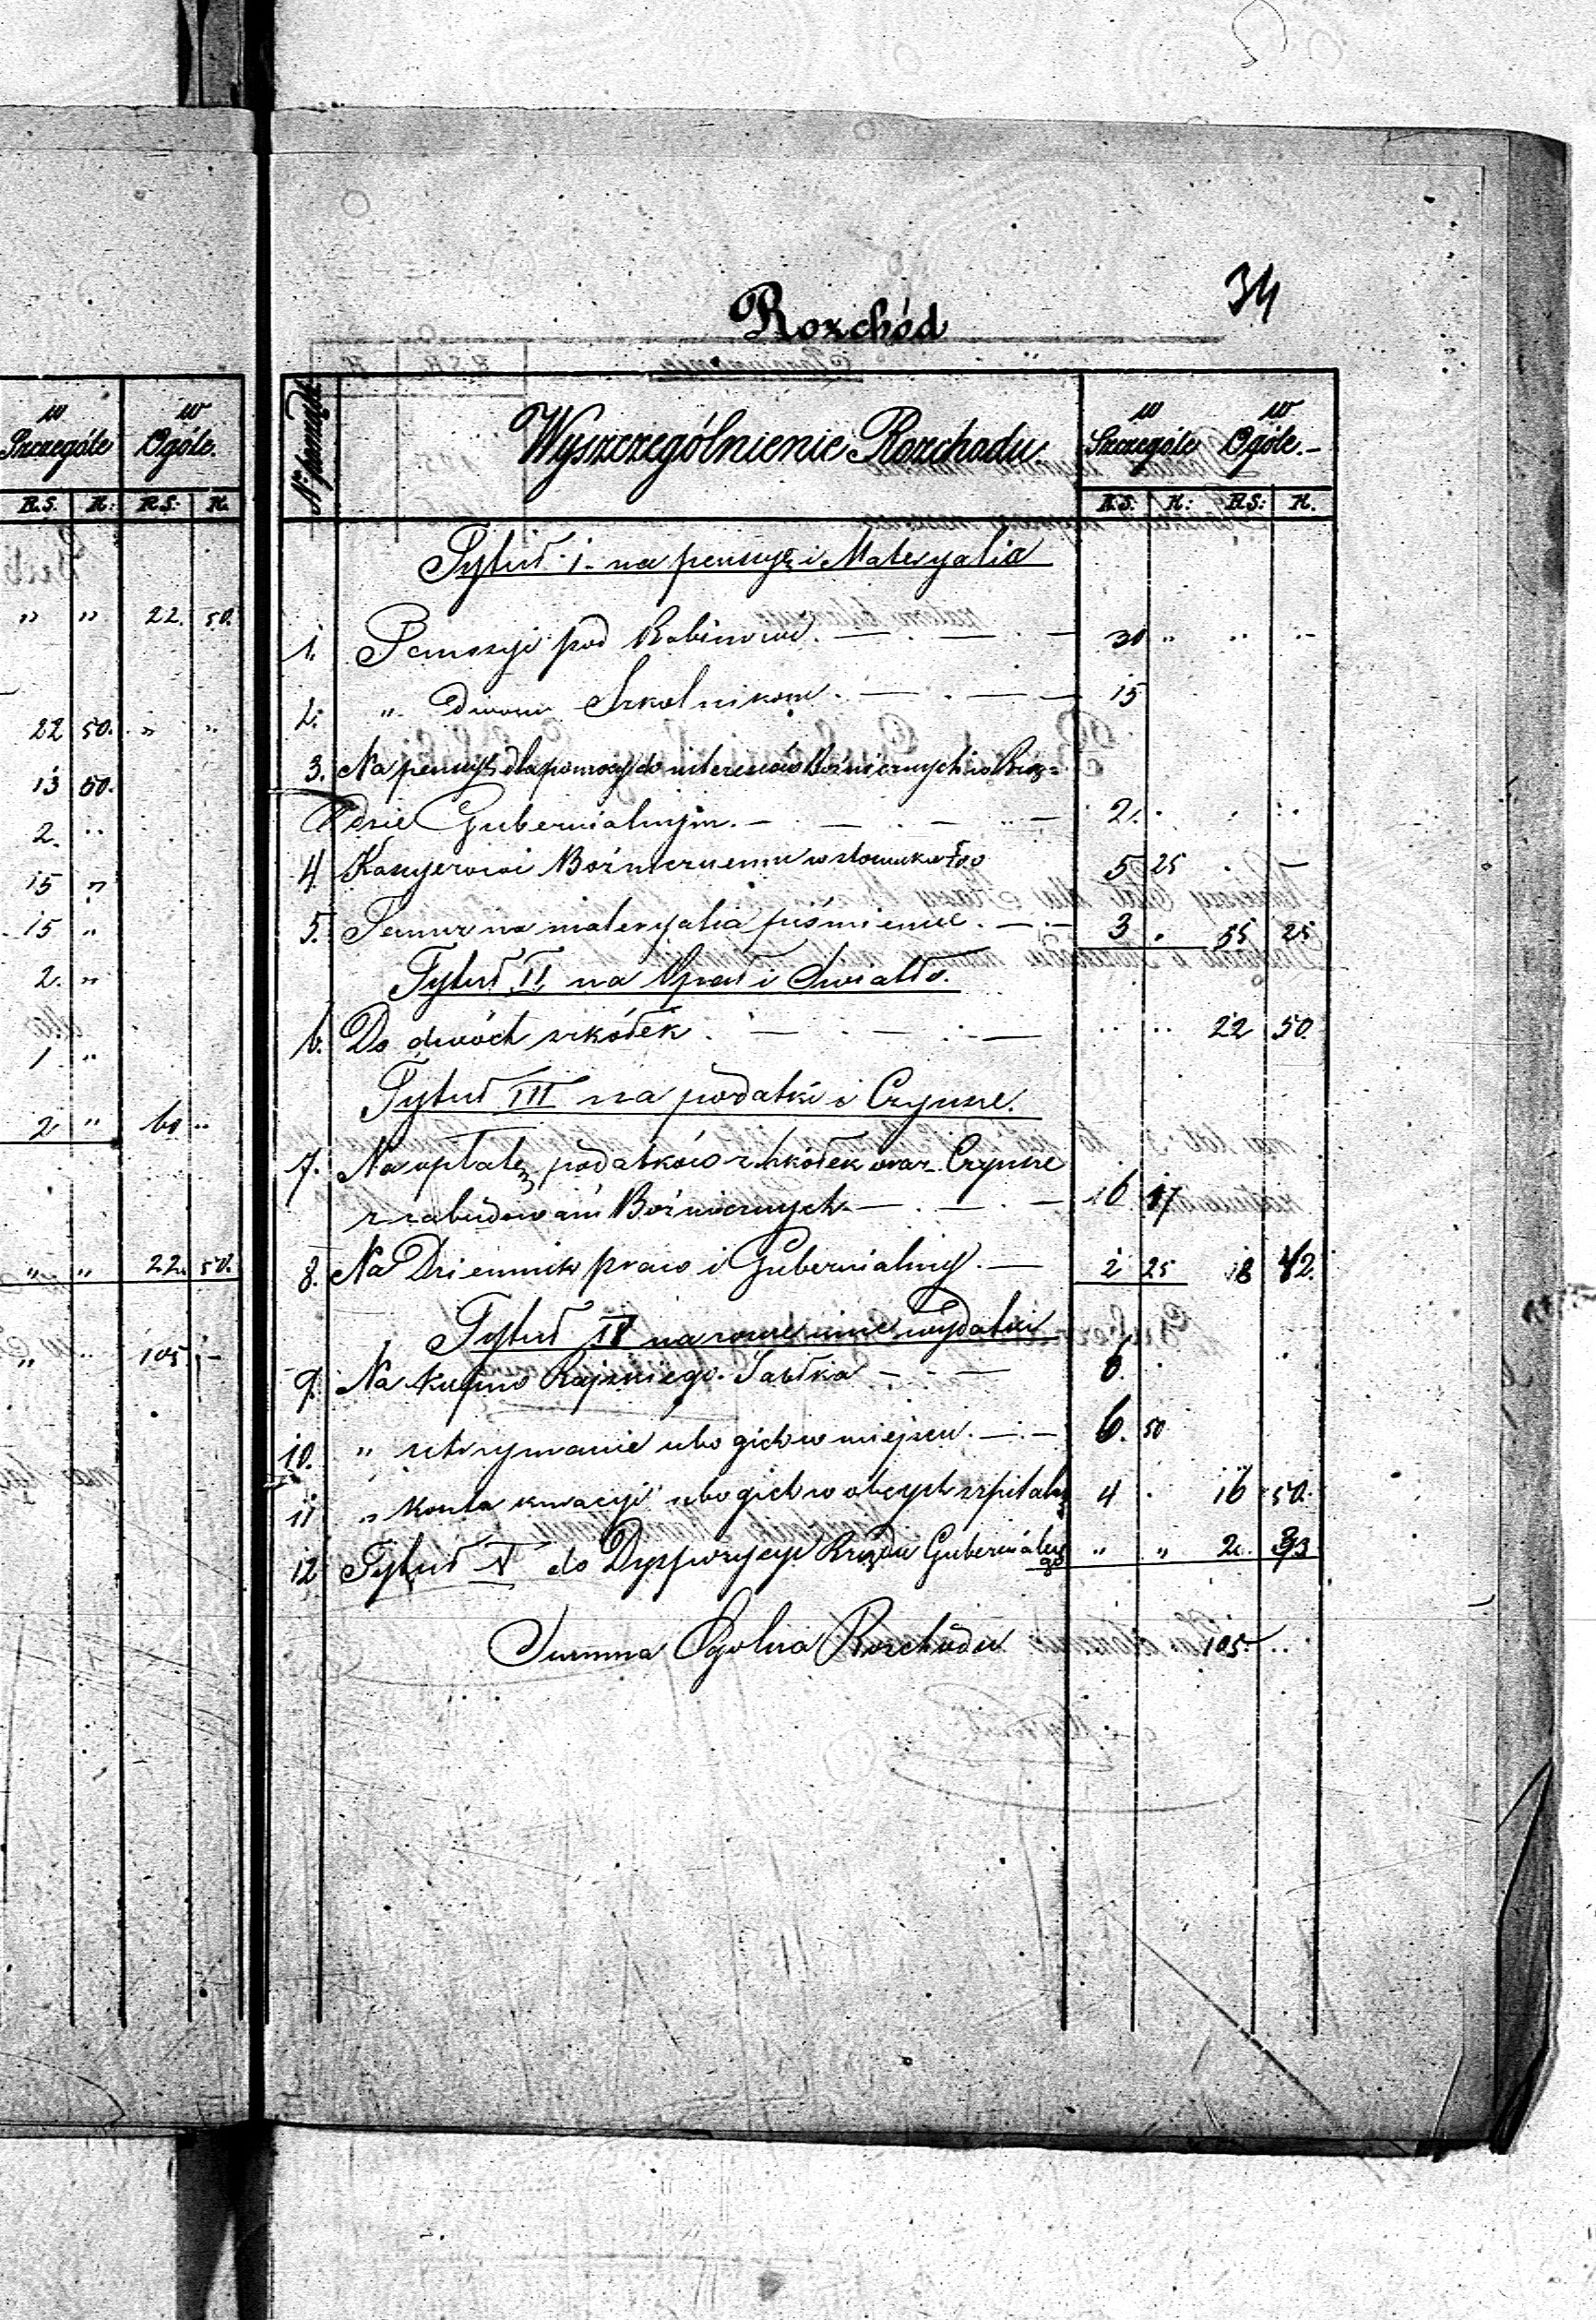 34
Rozchód
w Szczególe w Ogóle.
R.S. K: R.S: K.
" " 22. 50.
22 50. " "
13 50.
2. "
15 "
15 "
2. "
1 "
2 " 60 "
" " 22. 50.
" " 105 -
Wyszczególnienie Rozchodu. w Szczególe w Ogóle.
R.S. K: R.S: K.
Tytuł I. na pensye i Materyalia
1. Pensyi pod Rabinowi. 30 " " "
2. " Dwom Szkolnikom. 15
3. Na pensyę dla pomocy do interesów Bożniczych w Rzą=
dzie Gubernialnym. 2.
4. Kasyerowi Bożniczemu w stosunku 5 25
5. Temuż na materyalia piśmienne. 3 . 55 25
Tytuł II na Opał i Swiatło.
6. Do dwóch szkółek " " 22 50.
Tytuł III na podatki i Czynsze.
7. Na opłatę podatków z szkółek oraz Czynsze
z zabudowań Bożniczych 16 17
8. Na Dziennik praw i Gubernialny. 2 25 18 42.
Tytuł IV na rozne inne wydatki
9. Na kupno Rajskiego Jabłka 6.
10. " utrzymanie ubogich w miejscu. 6. 50
11 " koszta kuracyi ubogich w obcych szpitalach 4 . 16 50.
12 Tytuł V do Dyspozycyi Rządu Gubernialnego " " 2. 33
Summa Ogolna Rozchodu 105 "